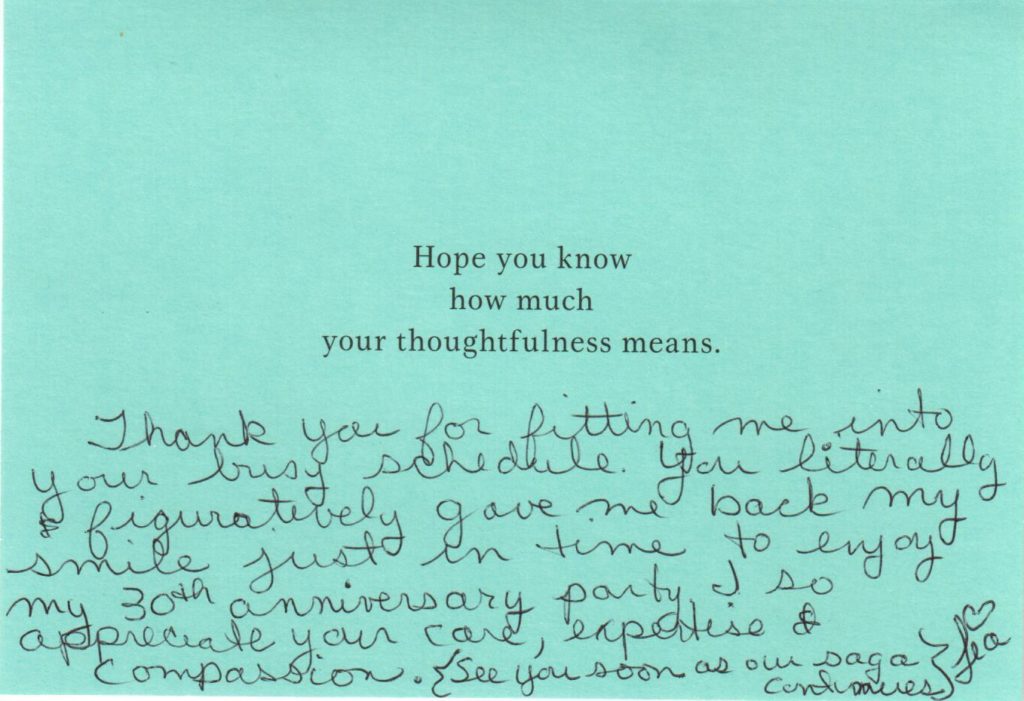 Hope you know
how much
your thoughtfulness means.
Thank you for fitting me into
your busy schedule. You literally
& figuratively gave me back my
smile just in time to enjoy
my 30th anniversary party. I so
appreciate your care, expertise &
compassion. {See you soon as our saga
continues}